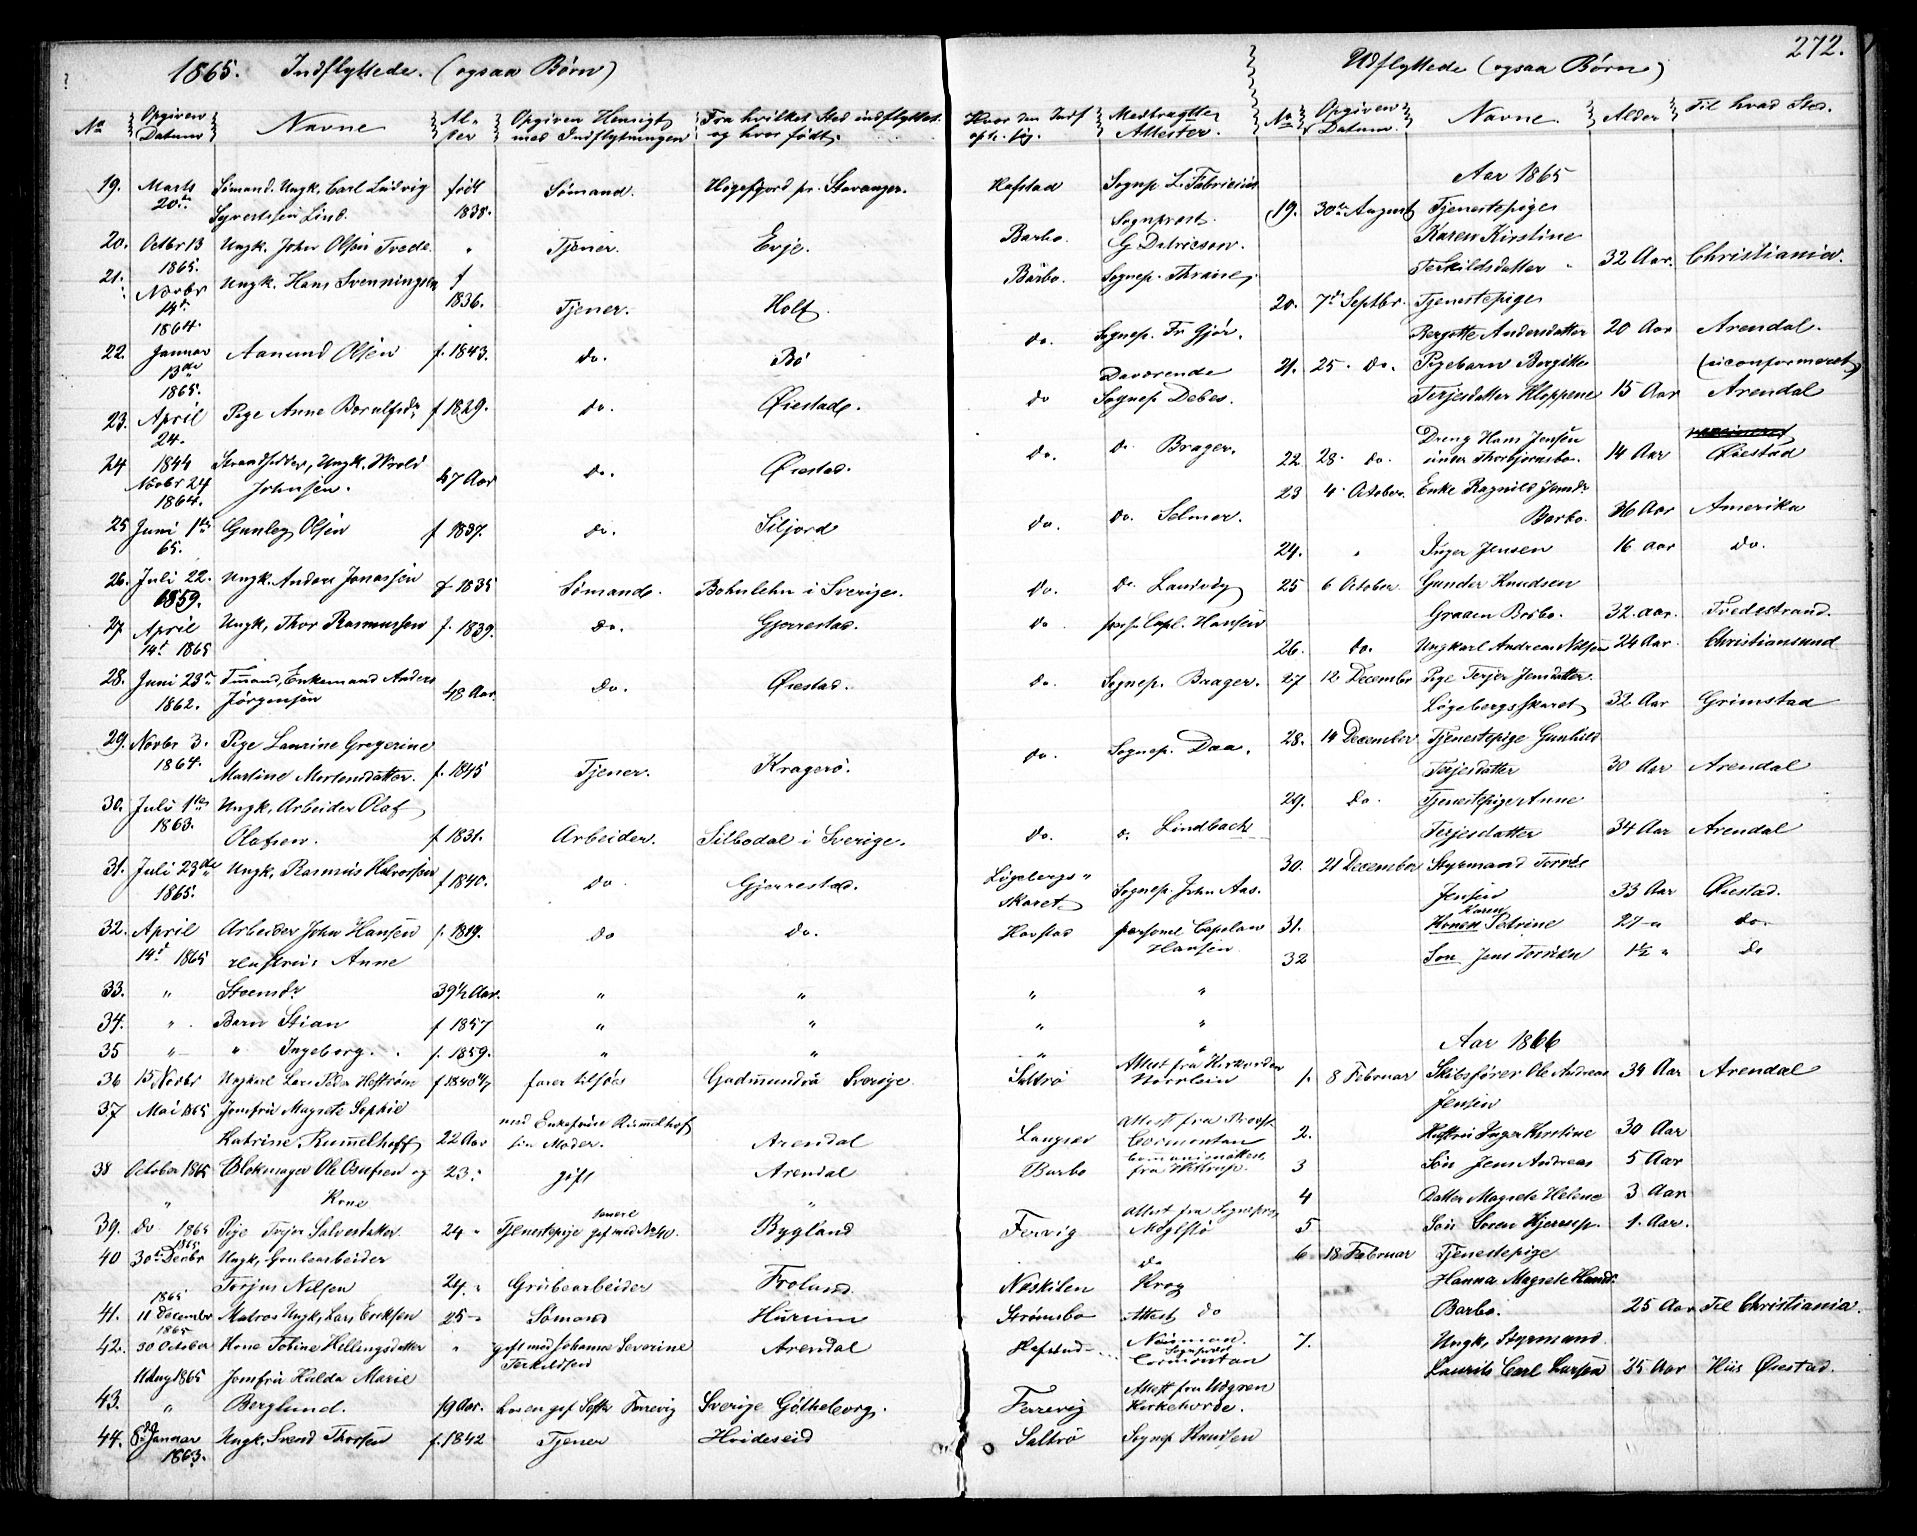 272.
1865. Indflyttede. (ogsaa Børn)
No Opgiven Datum Navne Alder Opgiven Hensigt med Indflytningen Fra hvilket Sted indflyttet og hvor født. Hvor den Indf. oph. sig. Medbragte Attester.
19. Marts 20de Sømand. Ungk. Carl Ludvig født Sømand. Høgsfjord pr. Stavanger. Hofstad Sognep. L. Fabricius
Syvertsen Lind. 1838.
20. Octbr 13 Ungk. John Olsen Tvede " Tjener. Evje. Barbo. Sognprest
1865.
21. Novbr Ungk. Hans Svenningsen f Barbo. Sognep. Thrane
14de 1864. 1836. Tjener. Holt. do. Sognep. Fr. Gjør.
22. Januar Aanund Olsen f. 1843. do. Bø do Daværende Sognep Debes.
13de 1865.
23. April Pige Anne f 1829. do. Øiestad. do. do Brager.
24.
24 1844 Ungk. Johnsen. 47 Aar do. Øiestad. do. do. Selmer.
Novbr 24 1864.
25 Juni 1ste Gunleg Olsen f 1837. do. Siljord
65.
26. Juli 22. Ungk. Anders Jonassen f 1835 Sømand. Bohuslehn i Sverige. do. do. Landvig
1859.
27 April Ungk. Thor Rasmussen f. 1839. do. Gjerrestad. do pers. Capl. Hansen
14de 1865
28. Juni 23de Tømmand, Enkemand Anders 48 Aar. do. Øiestad. do. Sognep. Brager.
1862. Jørgensen
29. Novbr 3. Pige Laurine Gregerine
1864. Martine Mortensdatter. f. 1845 Tjener. Kragerø. do. Sognep. Daa.
30. Juli 1ste Ungk. Arbeider Olaf
1863. Olafsen. f 1831. Arbeider. Silbodal i Sverige. do. do. Lindbach
31. Juli 23de Ungk. Rasmus Halvorsen f 1840. do Gjerrestad. Løgebergs- skaret Sognep. John Aas.
1865.
32. April Arbeider John Hansen f. 1819. do do. Havstad personel Capelan Hansen
14de 1865 Hustru: Anne
33. " Svensdr 39½ Aar. " " " "
34. " Barn Stian f 1857 " " " "
35 " " Ingeborg. f. 1859. " " " "
36 15 Novbr Ungkarl Lars Peder Hefstrøm f 1840 farer tilsøes Gudmundrå Sverige Saltrø Attest fra Kirkeherden
37 Mai 1865 Jomfru Magrete Sophie
Katrine Rummelhoff 22 Aar med Enkefrue Rummelhof sin Moder. Arendal Langsæ Attest fra Provst Cormontan
38 October 1865 Blokmager Ole Osufsen og 23. gift Arendal Barbo
" Kone "
39. do 1865 Pige Terjer Salvesdatter 24 " Tjenestepige senere gift med No 40. Bygland Fervig Attest fra Sogneprest
40 30te Decbr 1865 Ungk. Grubearbeider
Terjus Nilsen 24. " Grubearbeider Froland Neskilen do Krog
41. 11 December 1865 Matros Ungk. Lars Eriksen 25 " Sømand Hurum Strømsbo Attest do
42. 30 October 1865 Kone Tobine Hellingsdatter " gift med Johanne Severine Terkildsen Arendal Hofstad Sogneprest Cormontan
11 Aug 1865 Jomfru Hulda Marie
43. " Berglund. 19 Aar. hos en gift Søster Ferrevig Sverige Götheborg. Ferrevig Attest fra Udgren Kirkeherde.
44. 8de Januar Ungk. Svend Thorsen f. 1842 Tjener Hvideseid Saltrø Sognep Knudsen
1863.
Udflyttede (ogsaa Børn)
No Opgiven Datum. Navne. Alder Til hvad Sted.
Aar 1865
19. 30te August Tjenestepige
Karen Kirstine
Terkildsdatter 32 Aar. Christiania.
20. 7de Septbr. Tjenestepige
Bergitte Andersdatter 20 Aar Arendal.
21. 25. do. Pigebarn Bergitte (uconfirmeret)
Terjesdatter Kloppene 15 Aar Arendal
22 28. do. Dreng Hans Jensen
under Thorbjørnsbo. 14 Aar Øiestad
23 4. October. Enke Ragnild Jensdr
Barbo. 36 Aar Amerika
24. " Inger Jensen 16 aar do.
25 6 October Gunder Knudsen
Graaen Barbo. 32 aar. Tvedestrand.
26. do. Ungkarl Andreas Nilsen 24 Aar. Christiansund
27 12 December Pige Terjer Jensdatter
Løgebergsskaret 32 Aar Grimstad
28. 14 December Tjenestepige Gunhild
Terjesdatter 30 Aar Arendal
29. do. Tjenestepige Anne
Terjesdatter 34 Aar Arendal
30. 21 December Styrmand Torkel
Jensen 33 Aar Øiestad.
31. Konen Karen Petrine 27 " do.
32 Søn Jens 1½ " do
Aar 1866
1. 8 Februar Skibsfører Ole Andreas 34 Aar Arendal
Jensen
2. Hustru Inger Kirstine 30 Aar
3 Søn Jens Andreas 5 Aar
4 Datter Magrete Helene 3 Aar
5 Søn Søren Hjerrup. 1. Aar.
6 18 Februar Tjenestepige
Hanna Magrete
Barbo. 25 Aar Til Christiania.
7. Ungk. Styrmand
Laurits Carl Larsen 25 Aar Hiis Øiestad.